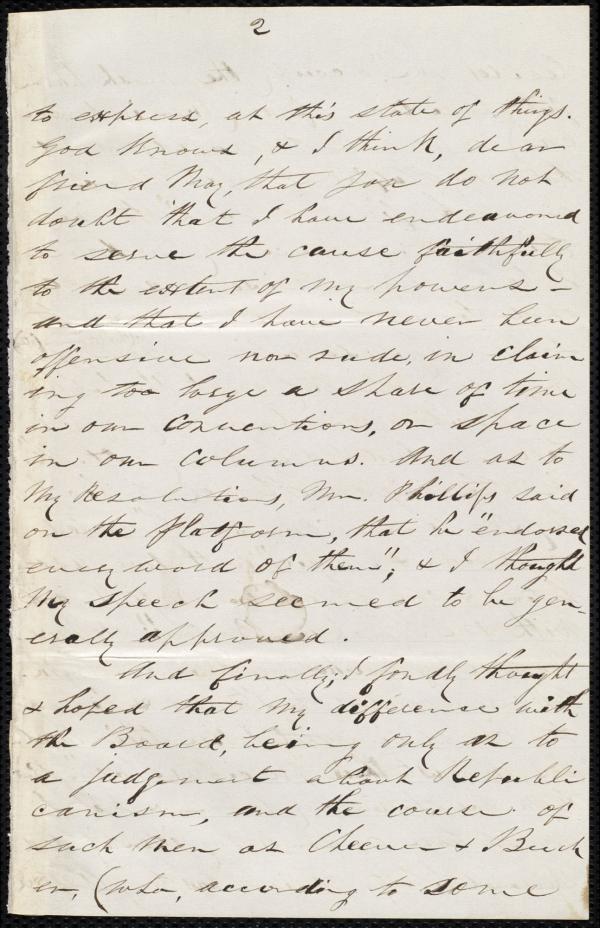 2
to express, at this state of things.
God knows, & I think, dear
friend May, that you do not
doubt that I have endeavored
to serve the cause faithfully
to the extent of my powers –
and that I have never been
offensive nor rude, in claim
ing too large a share of time
in our Conventions, or space
in our columns. And as to
my Resolutions, Mr. Phillips said
on the platform, that he "endorsed
every word of them"; & I thought
my speech seemed to be gen-
erally approved.
And finally, I fondly thought
& hoped that my difference with
the Board, being only as to
a judgement about Republi
canism, and the course of
such men as Cheever & Beech
er, (who, according to some